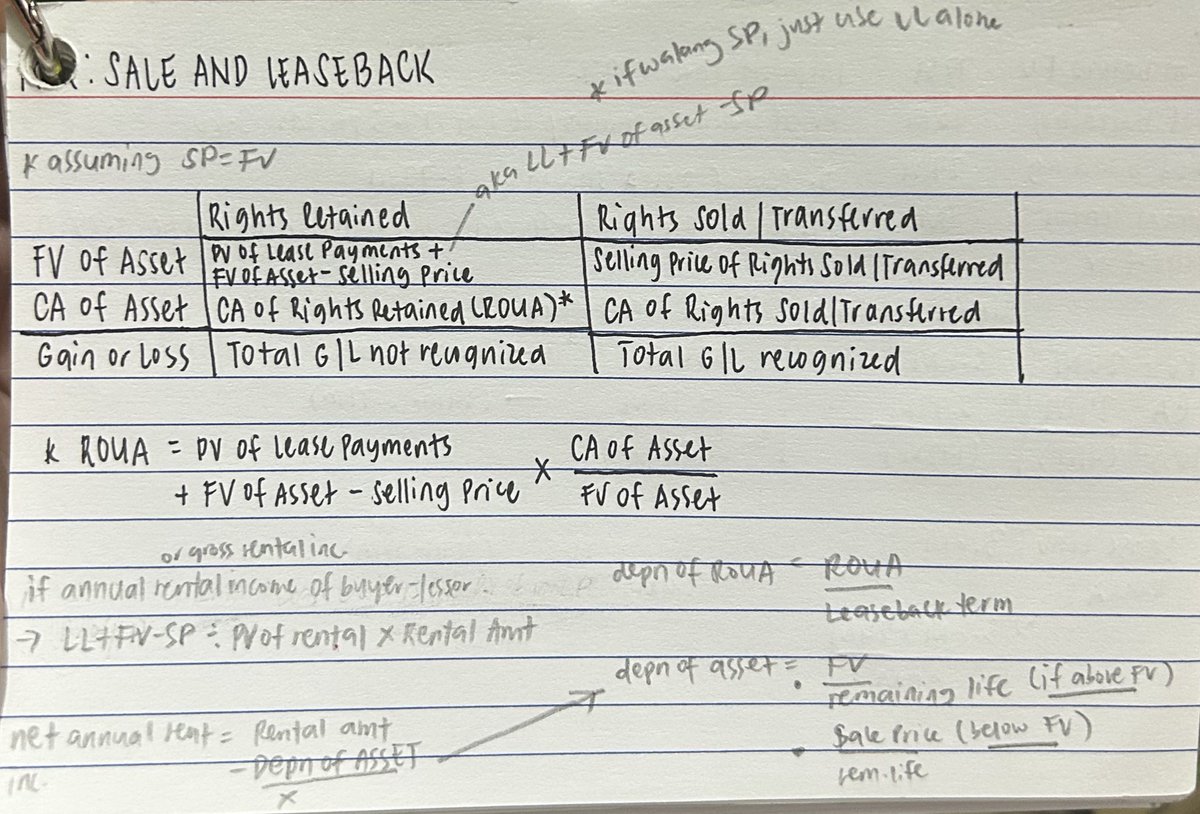 : SALE AND LEASEBACK
* if walang SP, just use LL alone
* assuming SP=FV
aka LL + FV of asset - SP
Rights Retained
Rights Sold / Transferred
FV of Asset
PV of Lease Payments +
FV of Asset - Selling Price
Selling Price of Rights Sold / Transferred
CA of Asset
CA of Rights Retained (ROUA)*
CA of Rights Sold/Transferred
Gain or Loss
Total G/L not recognized
Total G/L recognized
* ROUA = PV of Lease Payments
+ FV of Asset - Selling Price
x
CA of Asset
FV of Asset
or gross rental inc.
if annual rental income of buyer-lessor
→ LL + FV - SP ÷ PV of rental x Rental Amt
depn of ROUA = ROUA
Leaseback term
depn of asset =
• FV
remaining life (if above FV)
• Sale Price (below FV)
rem. life
net annual rent = Rental amt
inc.
- Depn of ASSET
x